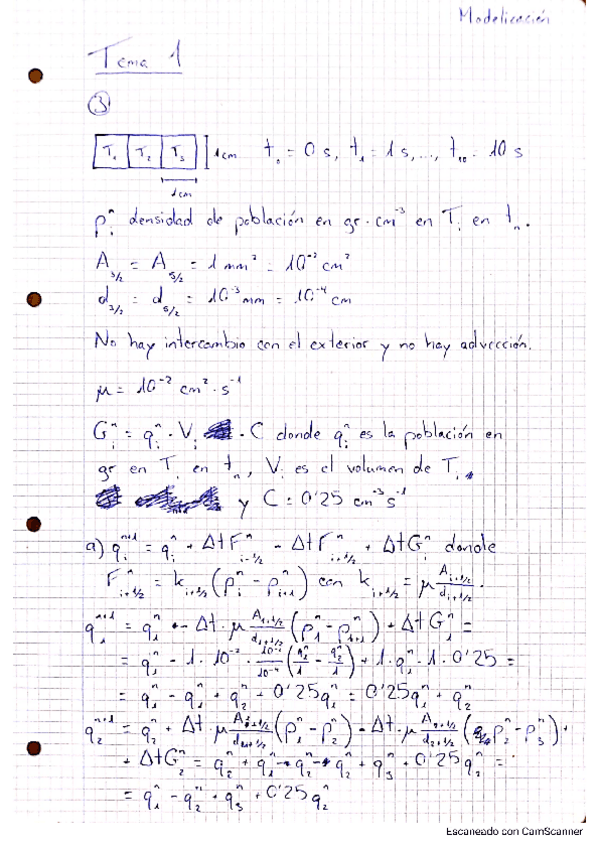 Modelización
Tema 1
③
T₁ T₂ T₃ 1cm t₀ = 0 s, t₁ = 1 s, ..., t₁₀ = 10 s
1cm
ρᵢⁿ densidad de población en gr · cm⁻³ en Tᵢ en tₙ.
A₃/₂ = A₅/₂ = 1 mm² = 10⁻² cm²
d₃/₂ = d₅/₂ = 10⁻³ mm = 10⁻⁴ cm
No hay intercambio con el exterior y no hay advección.
μ = 10⁻² cm² · s⁻¹
Gᵢⁿ = qᵢⁿ · Vᵢ · C donde qᵢⁿ es la población en
gr en Tᵢ en tₙ, Vᵢ es el volumen de Tᵢ
y C = 0'25 cm⁻³ s⁻¹
a) qᵢⁿ⁺¹ = qᵢⁿ + Δt Fⁿᵢ₋₁/₂ - Δt Fⁿᵢ₊₁/₂ + Δt Gᵢⁿ donde
Fⁿᵢ₊₁/₂ = kᵢ₊₁/₂ (ρᵢⁿ - ρⁿᵢ₊₁) con kᵢ₊₁/₂ = μ Aᵢ₊₁/₂ / dᵢ₊₁/₂ .
q₁ⁿ⁺¹ = q₁ⁿ - Δt · μ A₁₊₁/₂ / d₁₊₁/₂ (ρ₁ⁿ - ρⁿ₁₊₁) + Δt G₁ⁿ =
= q₁ⁿ - 1 · 10⁻² · 10⁻² / 10⁻⁴ (q₁ⁿ/1 - q₂ⁿ/1) + 1 · q₁ⁿ · 1 · 0'25 =
= q₁ⁿ - q₁ⁿ + q₂ⁿ + 0'25 q₁ⁿ = 0'25 q₁ⁿ + q₂ⁿ
q₂ⁿ⁺¹ = q₂ⁿ + Δt · μ (ρ₁ⁿ - ρ₂ⁿ) - Δt · μ A₂₊₁/₂ / d₂₊₁/₂ (ρ₂ⁿ - ρ₃ⁿ) +
+ Δt G₂ⁿ = q₂ⁿ + q₁ⁿ - q₂ⁿ - q₂ⁿ + q₃ⁿ + 0'25 q₂ⁿ =
= q₁ⁿ - q₂ⁿ + q₃ⁿ + 0'25 q₂ⁿ
Escaneado con CamScanner